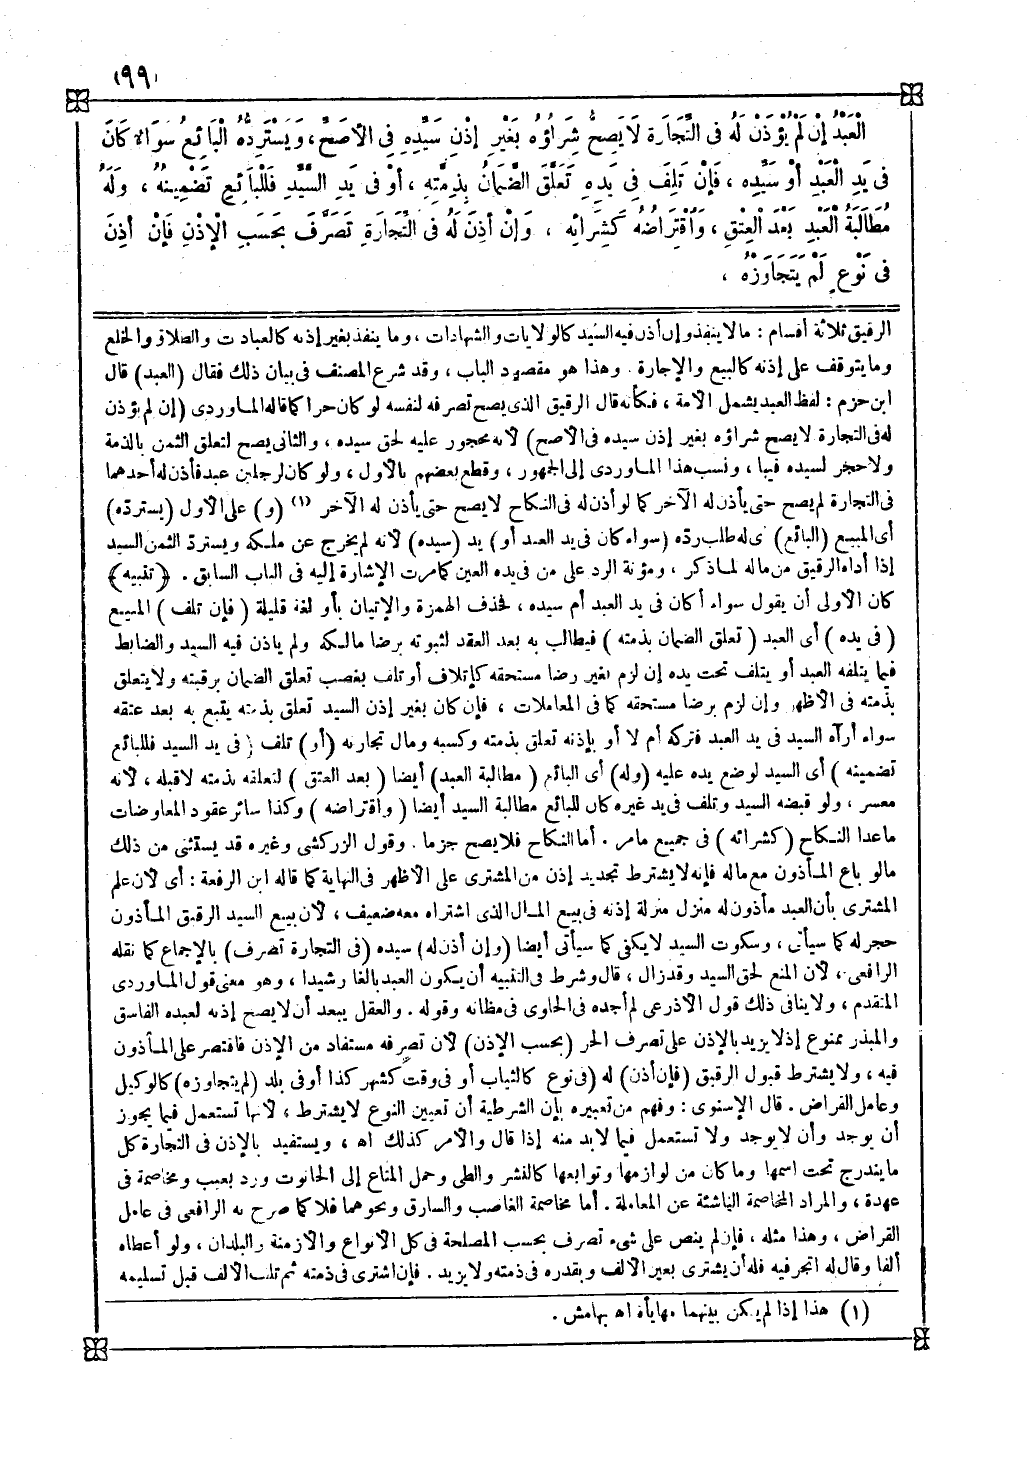 ٩٩
الْعَبْدُ إِنْ لَمْ يُؤْذَنْ لَهُ فِى التِّجَارَةِ لَا يَصِحُّ شِرَاؤُهُ بِغَيْرِ إِذْنِ سَيِّدِهِ فِى الْأَصَحِّ ، وَيَسْتَرِدُّهُ الْبَائِعُ سَوَاءٌ كَانَ
فِى يَدِ الْعَبْدِ أَوْ سَيِّدِهِ ، فَإِنْ تَلِفَ فِى يَدِهِ تَعَلَّقَ الضَّمَانُ بِذِمَّتِهِ ، أَوْ فِى يَدِ السَّيِّدِ فَلِلْبَائِعِ تَضْمِينُهُ ، وَلَهُ
مُطَالَبَةُ الْعَبْدِ بَعْدَ الْعِتْقِ ، وَاقْتِرَاضُهُ كَشِرَائِهِ ، وَإِنْ أَذِنَ لَهُ فِى التِّجَارَةِ تَصَرَّفَ بِحَسَبِ الْإِذْنِ فَإِنْ أَذِنَ
فِى نَوْعٍ لَمْ يَتَجَاوَزْهُ ،
الرقيق ثلاثة أقسام : ما لا ينفذ وإن أذن فيه السيد كالولايات والشهادات ، وما ينفذ بغير إذنه كالعبادت والطلاق والخلع
وما يتوقف على إذنه كالبيع والإجارة . وهذا هو مقصود الباب ، وقد شرع المصنف فى بيان ذلك فقال (العبد) قال
ابن حزم : لفظ العبد يشمل الأمة ، فكأنه قال الرقيق الذى يصح تصرفه لنفسه لو كان حرا كما قاله الماوردى (إن لم يؤذن
له فى التجارة لا يصح شراؤه بغير إذن سيده فى الأصح) لأنه محجور عليه لحق سيده ، والثانى يصح لتعلق الثمن بالذمة
ولا حجر لسيده فيها ، ونسب هذا الماوردى إلى الجمهور ، وقطع بعضهم بالأول ، ولو كان لرجلين عبد فأذن له أحدهما
فى التجارة لم يصح حتى يأذن له الآخر كما لو أذن له فى النكاح لا يصح حتى يأذن له الآخر (١) (و) على الأول (يسترده)
أى المبيع (البائع) أى له طلب رده (سواء كان فى يد العبد أو) يد (سيده) لأنه لم يخرج عن ملكه ويسترد الثمن السيد
إذا أداه الرقيق من ماله لما ذكر ، ومؤنة الرد على من فى يده العين كما مرت الإشارة إليه فى الباب السابق . ﴿ تنبيه ﴾
كان الأولى أن يقول سواء أكان فى يد العبد أم سيده ، فحذف الهمزة والإتيان بأو لغة قليلة ( فإن تلف ) المبيع
( فى يده ) أى العبد ( تعلق الضمان بذمته ) فيطالب به بعد العقد لثبوته برضا مالكه ولم يأذن فيه السيد والضابط
فيما يتلفه العبد أو يتلف تحت يده إن لزم بغير رضا مستحقه كإتلاف أو تلف بغصب تعلق الضمان برقبته ولا يتعلق
بذمته فى الأظهر وإن لزم برضا مستحقه كما فى المعاملات ، فإن كان بغير إذن السيد تعلق بذمته يتبع به بعد عتقه
سواء أرآه السيد فى يد العبد فتركه أم لا أو بإذنه تعلق بذمته وكسبه ومال تجارته (أو) تلف ( فى يد السيد فللبائع
تضمينه ) أى السيد لوضع يده عليه (وله) أى البائع ( مطالبة العبد) أيضا ( بعد العتق ) لتعلقه بذمته لا قبله ، لأنه
معسر ، ولو قبضه السيد وتلف فى يد غيره كان للبائع مطالبة السيد أيضا ( واقتراضه ) وكذا سائر عقود المعاوضات
ماعدا النكاح ( كشرائه ) فى جميع ما مر . أما النكاح فلا يصح جزما . وقول الزركشى وغيره قد يستثنى من ذلك
ما لو باع المأذون مع ماله فإنه لا يشترط تجديد إذن من المشترى على الأظهر فى النهاية كما قاله ابن الرفعة : أى لأن علم
المشترى بأن العبد مأذون له منزل منزلة إذنه فى بيع المال الذى اشتراه معه ضعيف ، لأن بيع السيد الرقيق المأذون
حجر له كما سيأتى ، وسكوت السيد لا يكفى كما سيأتى أيضا (وإن أذن له) سيده (فى التجارة تصرف) بالإجماع كما نقله
الرافعى ، لأن المنع لحق السيد وقد زال ، قال وشرط فى التنبيه أن يكون العبد بالغا رشيدا ، وهو معنى قول الماوردى
المتقدم ، ولا ينافى ذلك قول الأذرعى لم أجده فى الحاوى فى مظانه وقوله . والعقل يبعد أن لا يصح إذنه لعبده الفاسق
والمبذر ممنوع إذ لا يزيد بالإذن على تصرف الحر (بحسب الإذن) لأن تصرفه مستفاد من الإذن فاقتصر على المأذون
فيه ، ولا يشترط قبول الرقيق (فإن أذن) له (فى نوع كالثياب أو فى وقت كشهر كذا أو فى بلد (لم يتجاوزه) كالوكيل
وعامل القراض . قال الإسنوى : وفهم من تعبيره بإن الشرطية أن تعيين النوع لا يشترط ، لأنها تستعمل فيما يجوز
أن يوجد وأن لا يوجد ولا تستعمل فيما لا بد منه إذا قال والأمر كذلك اه ، ويستفيد بالإذن فى التجارة كل
ما يندرج تحت اسمها وما كان من لوازمها وتوابعها كالنشر والطى وحمل المتاع إلى الحانوت ورد بعيب ومخاصمة فى
عهدة ، والمراد المخاصمة الناشئة عن المعاملة . أما مخاصمة الغاصب والسارق ونحوهما فلا كما صرح به الرافعى فى عامل
القراض ، وهذا مثله ، فإن لم ينص على شىء تصرف بحسب المصلحة فى كل الأنواع والأزمنة والبلدان ، ولو أعطاه
ألفا وقال له اتجر فيه فله أن يشترى بعين الألف وبقدره فى ذمته ولا يزيد . فإن اشترى فى ذمته ثم تلف الألف قبل تسليمه
(١) هذا إذا لم يكن بينهما مهايأة اه بهامش .